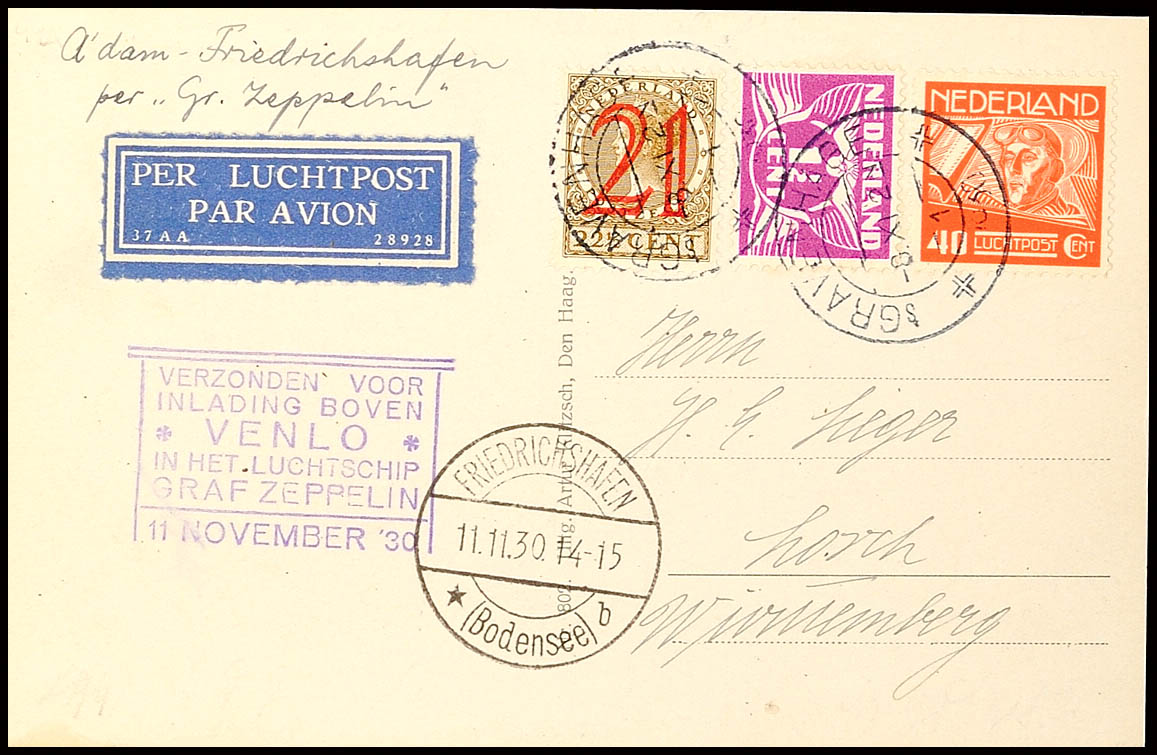 A'dam - Friedrichshafen
per „Gr. Zeppelin"
PER LUCHTPOST
PAR AVION
37AA 28928
NEDERLAND
21
22½ CENT
NEDERLAND
1½
CENT
NEDERLAND
40 LUCHTPOST CENT
'SGRAVENHAGE
'SGRAVENHAGE
VERZONDEN VOOR
INLADING BOVEN
VENLO
IN HET LUCHTSCHIP
GRAF ZEPPELIN
11 NOVEMBER '30
FRIEDRICHSHAFEN
11.11.30. 14-15
(Bodensee) b
Den Haag.
Herrn
H. E. Sieger
Lorch
Württemberg